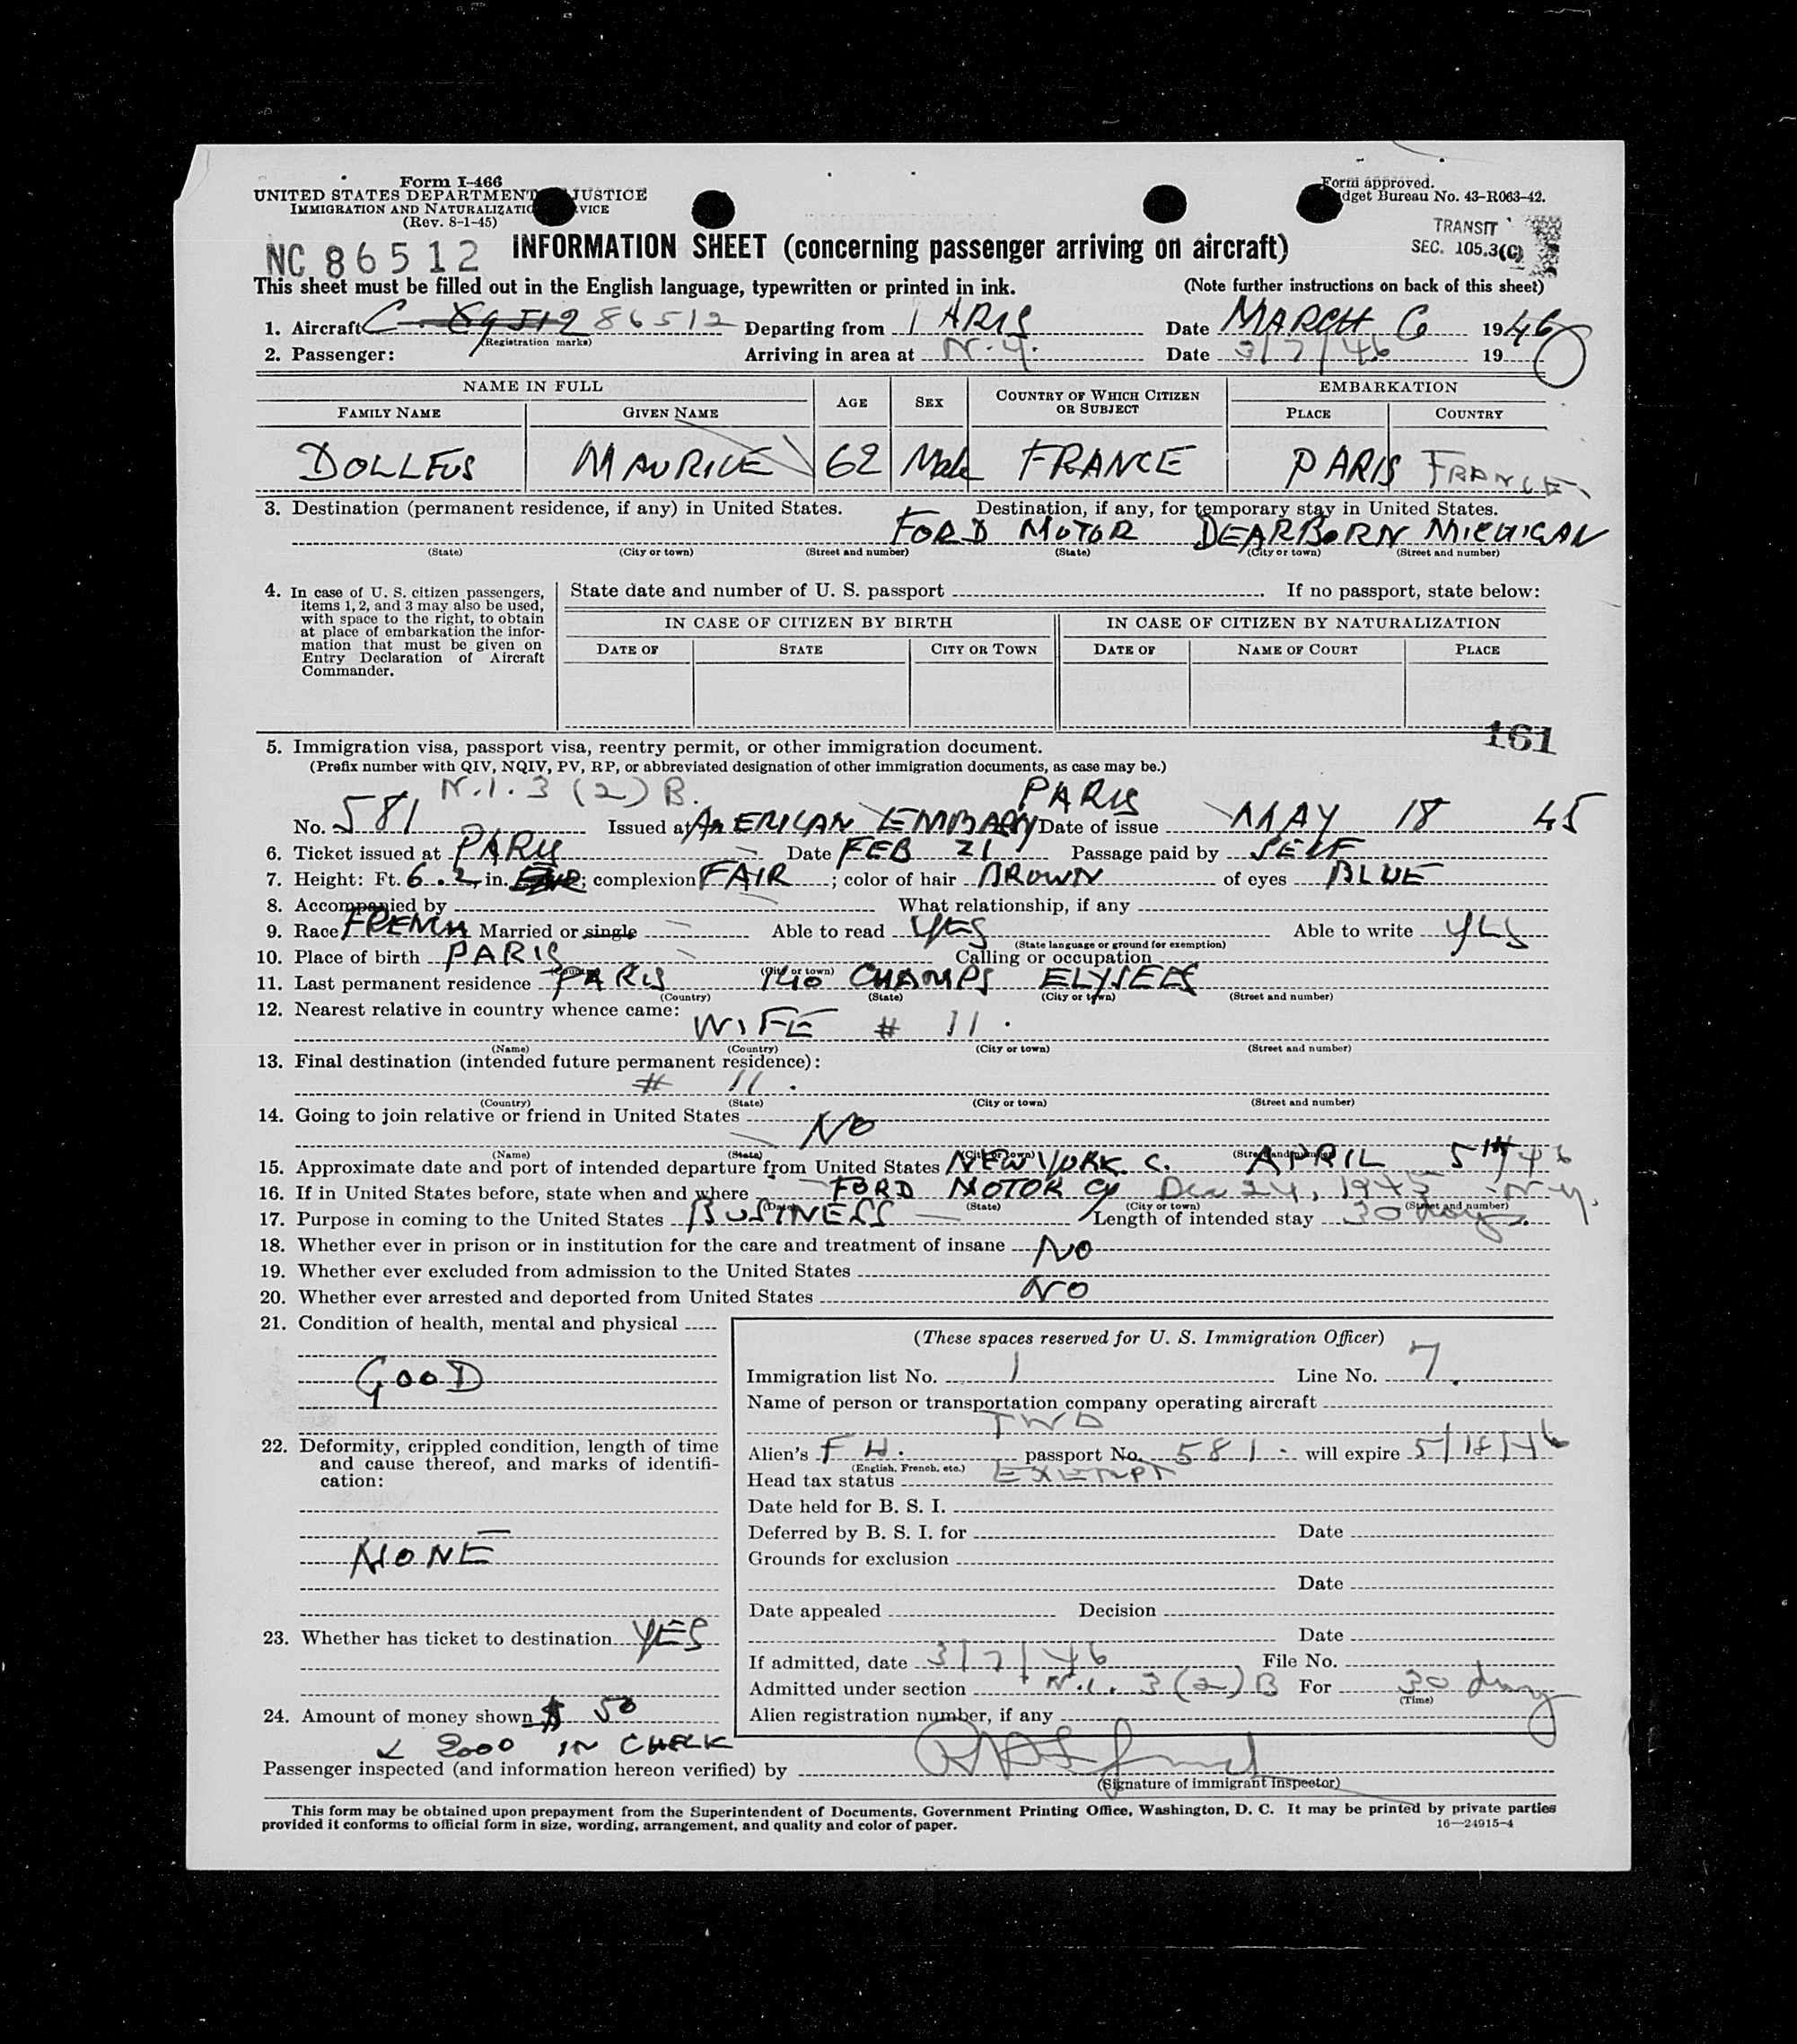 Form I-466
UNITED STATES DEPARTMENT JUSTICE
IMMIGRATION AND NATURALIZATIO VICE
(Rev. 8-1-45)
Form approved.
dget Bureau No. 43-R063-42.
TRANSIT
SEC. 105.3(C)
NC 86512
INFORMATION SHEET (concerning passenger arriving on aircraft)
This sheet must be filled out in the English language, typewritten or printed in ink. (Note further instructions on back of this sheet)
1. Aircraft C 86512 Departing from PARIS Date MARCH 6 1946
(Registration marks)
2. Passenger: Arriving in area at N.Y. Date 3/7/46 19
NAME IN FULL AGE SEX COUNTRY OF WHICH CITIZEN OR SUBJECT EMBARKATION
FAMILY NAME GIVEN NAME PLACE COUNTRY
DOLLFUS MAURICE 62 Male FRANCE PARIS FRANCE
3. Destination (permanent residence, if any) in United States. Destination, if any, for temporary stay in United States.
FORD MOTOR DEARBORN MICHIGAN
(State) (City or town) (Street and number) (State) (City or town) (Street and number)
4. In case of U. S. citizen passengers, items 1, 2, and 3 may also be used, with space to the right, to obtain at place of embarkation the information that must be given on Entry Declaration of Aircraft Commander.
State date and number of U. S. passport If no passport, state below:
IN CASE OF CITIZEN BY BIRTH IN CASE OF CITIZEN BY NATURALIZATION
DATE OF STATE CITY OR TOWN DATE OF NAME OF COURT PLACE
161
5. Immigration visa, passport visa, reentry permit, or other immigration document.
(Prefix number with QIV, NQIV, PV, RP, or abbreviated designation of other immigration documents, as case may be.)
N.I. 3 (2) B. PARIS
No. 581 Issued at AMERICAN EMBASSY Date of issue MAY 18 45
6. Ticket issued at PARIS Date FEB 21 Passage paid by SELF
7. Height: Ft. 6. 2 in. ; complexion FAIR ; color of hair BROWN of eyes BLUE
8. Accompanied by What relationship, if any
9. Race FRENCH Married or single Able to read YES Able to write YES
(State language or ground for exemption)
10. Place of birth PARIS Calling or occupation
(Country) (City or town)
11. Last permanent residence PARIS 140 CHAMPS ELYSEES
(Country) (State) (City or town) (Street and number)
12. Nearest relative in country whence came: WIFE # 11.
(Name) (Country) (City or town) (Street and number)
13. Final destination (intended future permanent residence):
# 11.
(Country) (State) (City or town) (Street and number)
14. Going to join relative or friend in United States NO
(Name) (State) (City or town) (Street and number)
15. Approximate date and port of intended departure from United States NEW YORK C. APRIL 5th 46
16. If in United States before, state when and where FORD MOTOR Cy Dec 24, 1945 - N.Y.
(Date) (State) (City or town) (Street and number)
17. Purpose in coming to the United States BUSINESS Length of intended stay 30 days.
18. Whether ever in prison or in institution for the care and treatment of insane NO
19. Whether ever excluded from admission to the United States
20. Whether ever arrested and deported from United States NO
21. Condition of health, mental and physical
GOOD
22. Deformity, crippled condition, length of time and cause thereof, and marks of identification:
NONE
23. Whether has ticket to destination YES
24. Amount of money shown $ 50
2000 IN CHECK
(These spaces reserved for U. S. Immigration Officer)
Immigration list No. 1 Line No. 7.
Name of person or transportation company operating aircraft
Alien's F.H. passport No. 581 will expire 5/18/46
(English, French, etc.)
Head tax status EXEMPT
Date held for B. S. I.
Deferred by B. S. I. for Date
Grounds for exclusion
Date
Date appealed Decision
Date
If admitted, date 3/7/46 File No.
Admitted under section N.I. 3(2)B For 30 days
(Time)
Alien registration number, if any
Passenger inspected (and information hereon verified) by
(Signature of immigrant inspector)
This form may be obtained upon prepayment from the Superintendent of Documents, Government Printing Office, Washington, D. C. It may be printed by private parties
provided it conforms to official form in size, wording, arrangement, and quality and color of paper. 16—24915-4